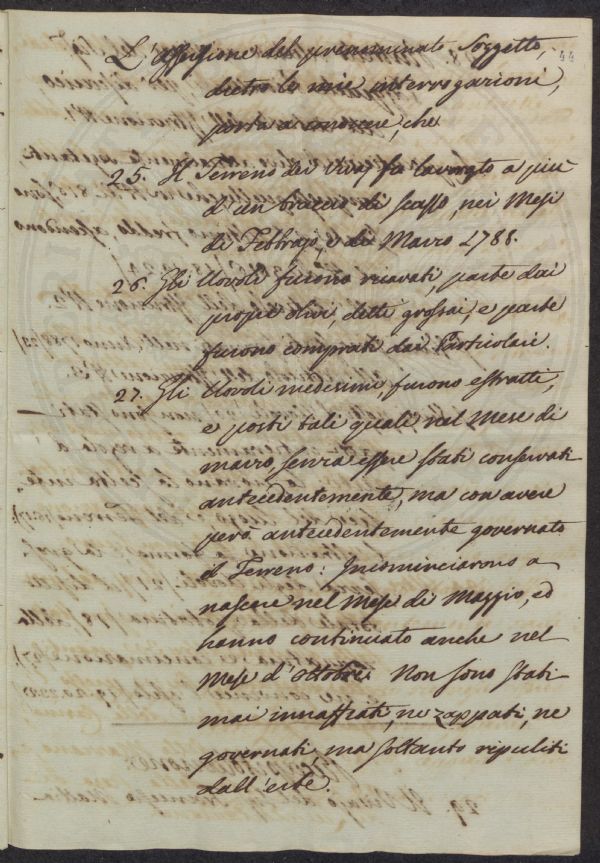 44
L'Ossessione del prenominato Soggetto,
dietro le mie interrogazioni,
porta a conoscere, che
25. Il Terreno dei Vivaj fu lavorato a più
d'un braccio di scasso, nei Mesi
di Febbrajo, e di Marzo 1788.
26. Gli Uovoli furono ricavati, parte dai
propri olivi, dette grossaj, e parte
furono comprati dai Particolari.
27. Gli Uovoli medesimi, furono estratti,
e posti tali quali nel Mese di
marzo, senza essere stati conservati
antecedentemente, ma con avere
però antecedentemente governato
il Terreno: Incominciarono a
nascere nel Mese di Maggio, ed
hanno continuato anche nel
Mese d'Ottobre. Non sono stati
mai innaffiati, ne zappati, ne
governati, ma soltanto ripuliti
dall'erbe.